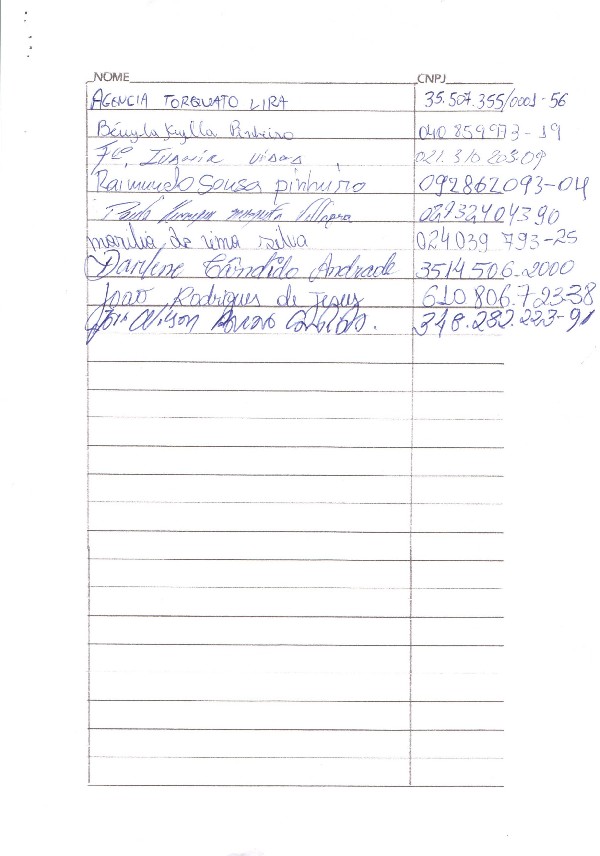 NOME CNPJ
AGENCIA TORQUATO LIRA 35.507.355/0001-56
Kylla Pinheiro 040 859973-19
Fca 021.310 203.09
Raimundo Sousa pinheiro 092862093-04
Paulo 02932404390
marilia de lima silva 024039 793-25
Darlene Cândido Andrade 3514506.2000
João Rodrigues de Jesus 610 806.7-23-38
José Nilson 348.282.223-91